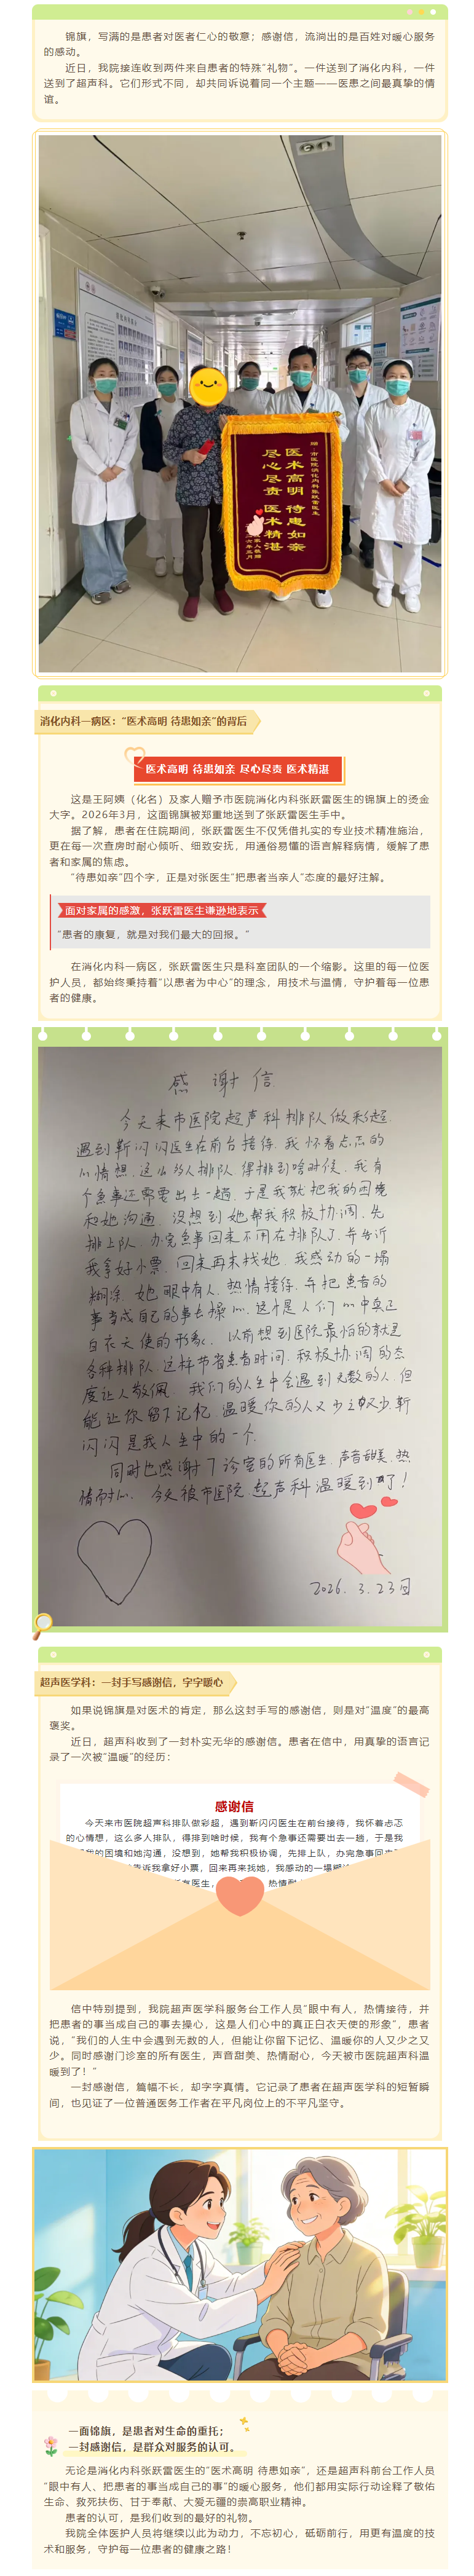 锦旗，写满的是患者对医者仁心的敬意；感谢信，流淌出的是百姓对暖心服务
的感动。
近日，我院接连收到两件来自患者的特殊“礼物”。一件送到了消化内科，一件
送到了超声科。它们形式不同，却共同诉说着同一个主题——医患之间最真挚的情
谊。
赠：市医院消化内科张跃雷医生
医术高明 待患如亲
尽心尽责 医术精湛
消化内科一病区：“医术高明 待患如亲”的背后
医术高明 待患如亲 尽心尽责 医术精湛
这是王阿姨（化名）及家人赠予市医院消化内科张跃雷医生的锦旗上的烫金
大字。2026年3月，这面锦旗被郑重地送到了张跃雷医生手中。
据了解，患者在住院期间，张跃雷医生不仅凭借扎实的专业技术精准施治，
更在每一次查房时耐心倾听、细致安抚，用通俗易懂的语言解释病情，缓解了患
者和家属的焦虑。
“待患如亲”四个字，正是对张医生“把患者当亲人”态度的最好注解。
面对家属的感激，张跃雷医生谦逊地表示
“患者的康复，就是对我们最大的回报。”
在消化内科一病区，张跃雷医生只是科室团队的一个缩影。这里的每一位医
护人员，都始终秉持着“以患者为中心”的理念，用技术与温情，守护着每一位患
者的健康。
感 谢 信
今天来市医院超声科排队做彩超
遇到靳闪闪医生在前台接待，我怀着忐忑的
心情想，这么多人排队，得排到啥时候，我有
个急事还需要出去一趟，于是我就把我的困境
和她沟通，没想到她帮我积极协调，先
排上队，办完急事回来不用在排队了，并告诉
我拿好小票，回来再来找她，我感动的一塌
糊涂，她眼中有人，热情接待，并把患者的
事当成自己的事去操心，这才是人们心中真正
白衣天使的形象，以前想到医院最怕的就是
各种排队，这样节省患者时间，积极协调的态
度让人敬佩，我们的人生中会遇到无数的人，但
能让你留下记忆，温暖你的人又少之又少，靳
闪闪是我人生中的一个。
同时也感谢了诊室的所有医生，声音甜美，热
情耐心，今天被市医院超声科温暖到了！
2026.3.23日
超声医学科：一封手写感谢信，字字暖心
如果说锦旗是对医术的肯定，那么这封手写的感谢信，则是对“温度”的最高
褒奖。
近日，超声科收到了一封朴实无华的感谢信。患者在信中，用真挚的语言记
录了一次被“温暖”的经历：
感谢信
今天来市医院超声科排队做彩超，遇到靳闪闪医生在前台接待，我怀着忐忑
的心情想，这么多人排队，得排到啥时候，我有个急事还需要出去一趟，于是我
我的困境和她沟通，没想到，她帮我积极协调，先排上队，办完急事回来
告诉我拿好小票，回来再来找她，我感动的一塌糊
有医生，
热情耐
信中特别提到，我院超声医学科服务台工作人员“眼中有人，热情接待，并
把患者的事当成自己的事去操心，这是人们心中的真正白衣天使的形象”，患者
说，“我们的人生中会遇到无数的人，但能让你留下记忆、温暖你的人又少之又
少。同时感谢门诊室的所有医生，声音甜美、热情耐心，今天被市医院超声科温
暖到了！”
一封感谢信，篇幅不长，却字字真情。它记录了患者在超声医学科的短暂瞬
间，也见证了一位普通医务工作者在平凡岗位上的不平凡坚守。
一面锦旗，是患者对生命的重托；
一封感谢信，是群众对服务的认可。
无论是消化内科张跃雷医生的“医术高明 待患如亲”，还是超声科前台工作人员
“眼中有人、把患者的事当成自己的事”的暖心服务，他们都用实际行动诠释了敬佑
生命、救死扶伤、甘于奉献、大爱无疆的崇高职业精神。
患者的认可，是我们收到的最好的礼物。
我院全体医护人员将继续以此为动力，不忘初心，砥砺前行，用更有温度的技
术和服务，守护每一位患者的健康之路！